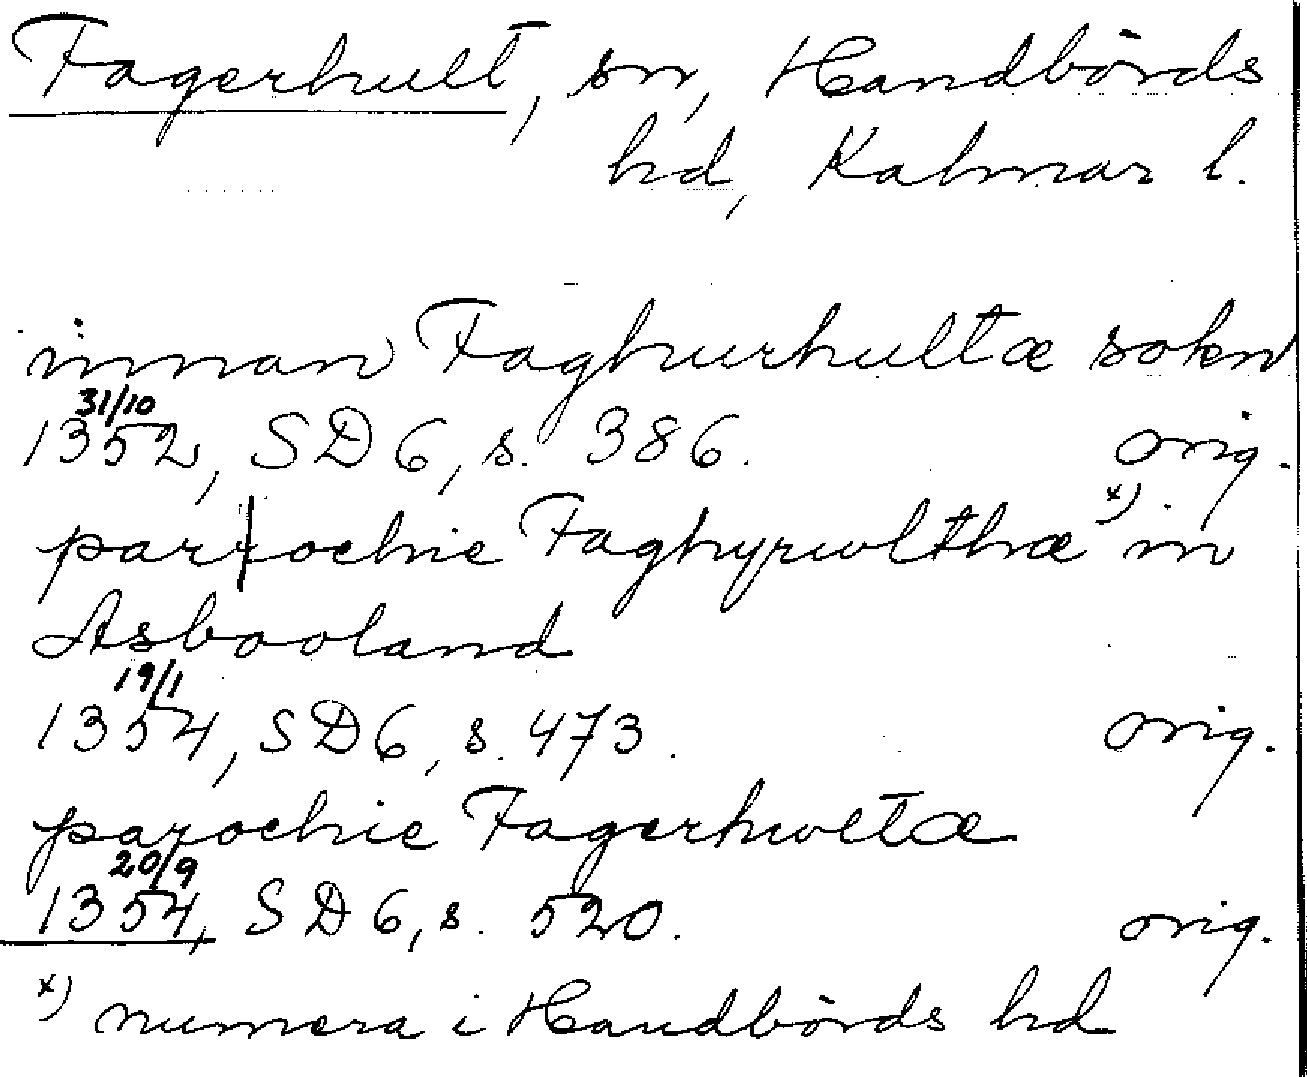 Fagerhult, sn, Handbörds
hd, Kalmar l.
innan Faghurhultæ sokn
31/10
1352, SD 6, s. 386. orig.
par|rochie Faghyrwlthæ x) in
Asbooland
19/1
1354, SD 6, s. 473. orig.
parochie Fagerhwltæ
20/9
1354, SD 6, s. 520. orig.
x) numera i Handbörds hd